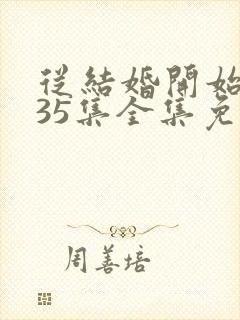 從結婚開始
35集全集免
周善培